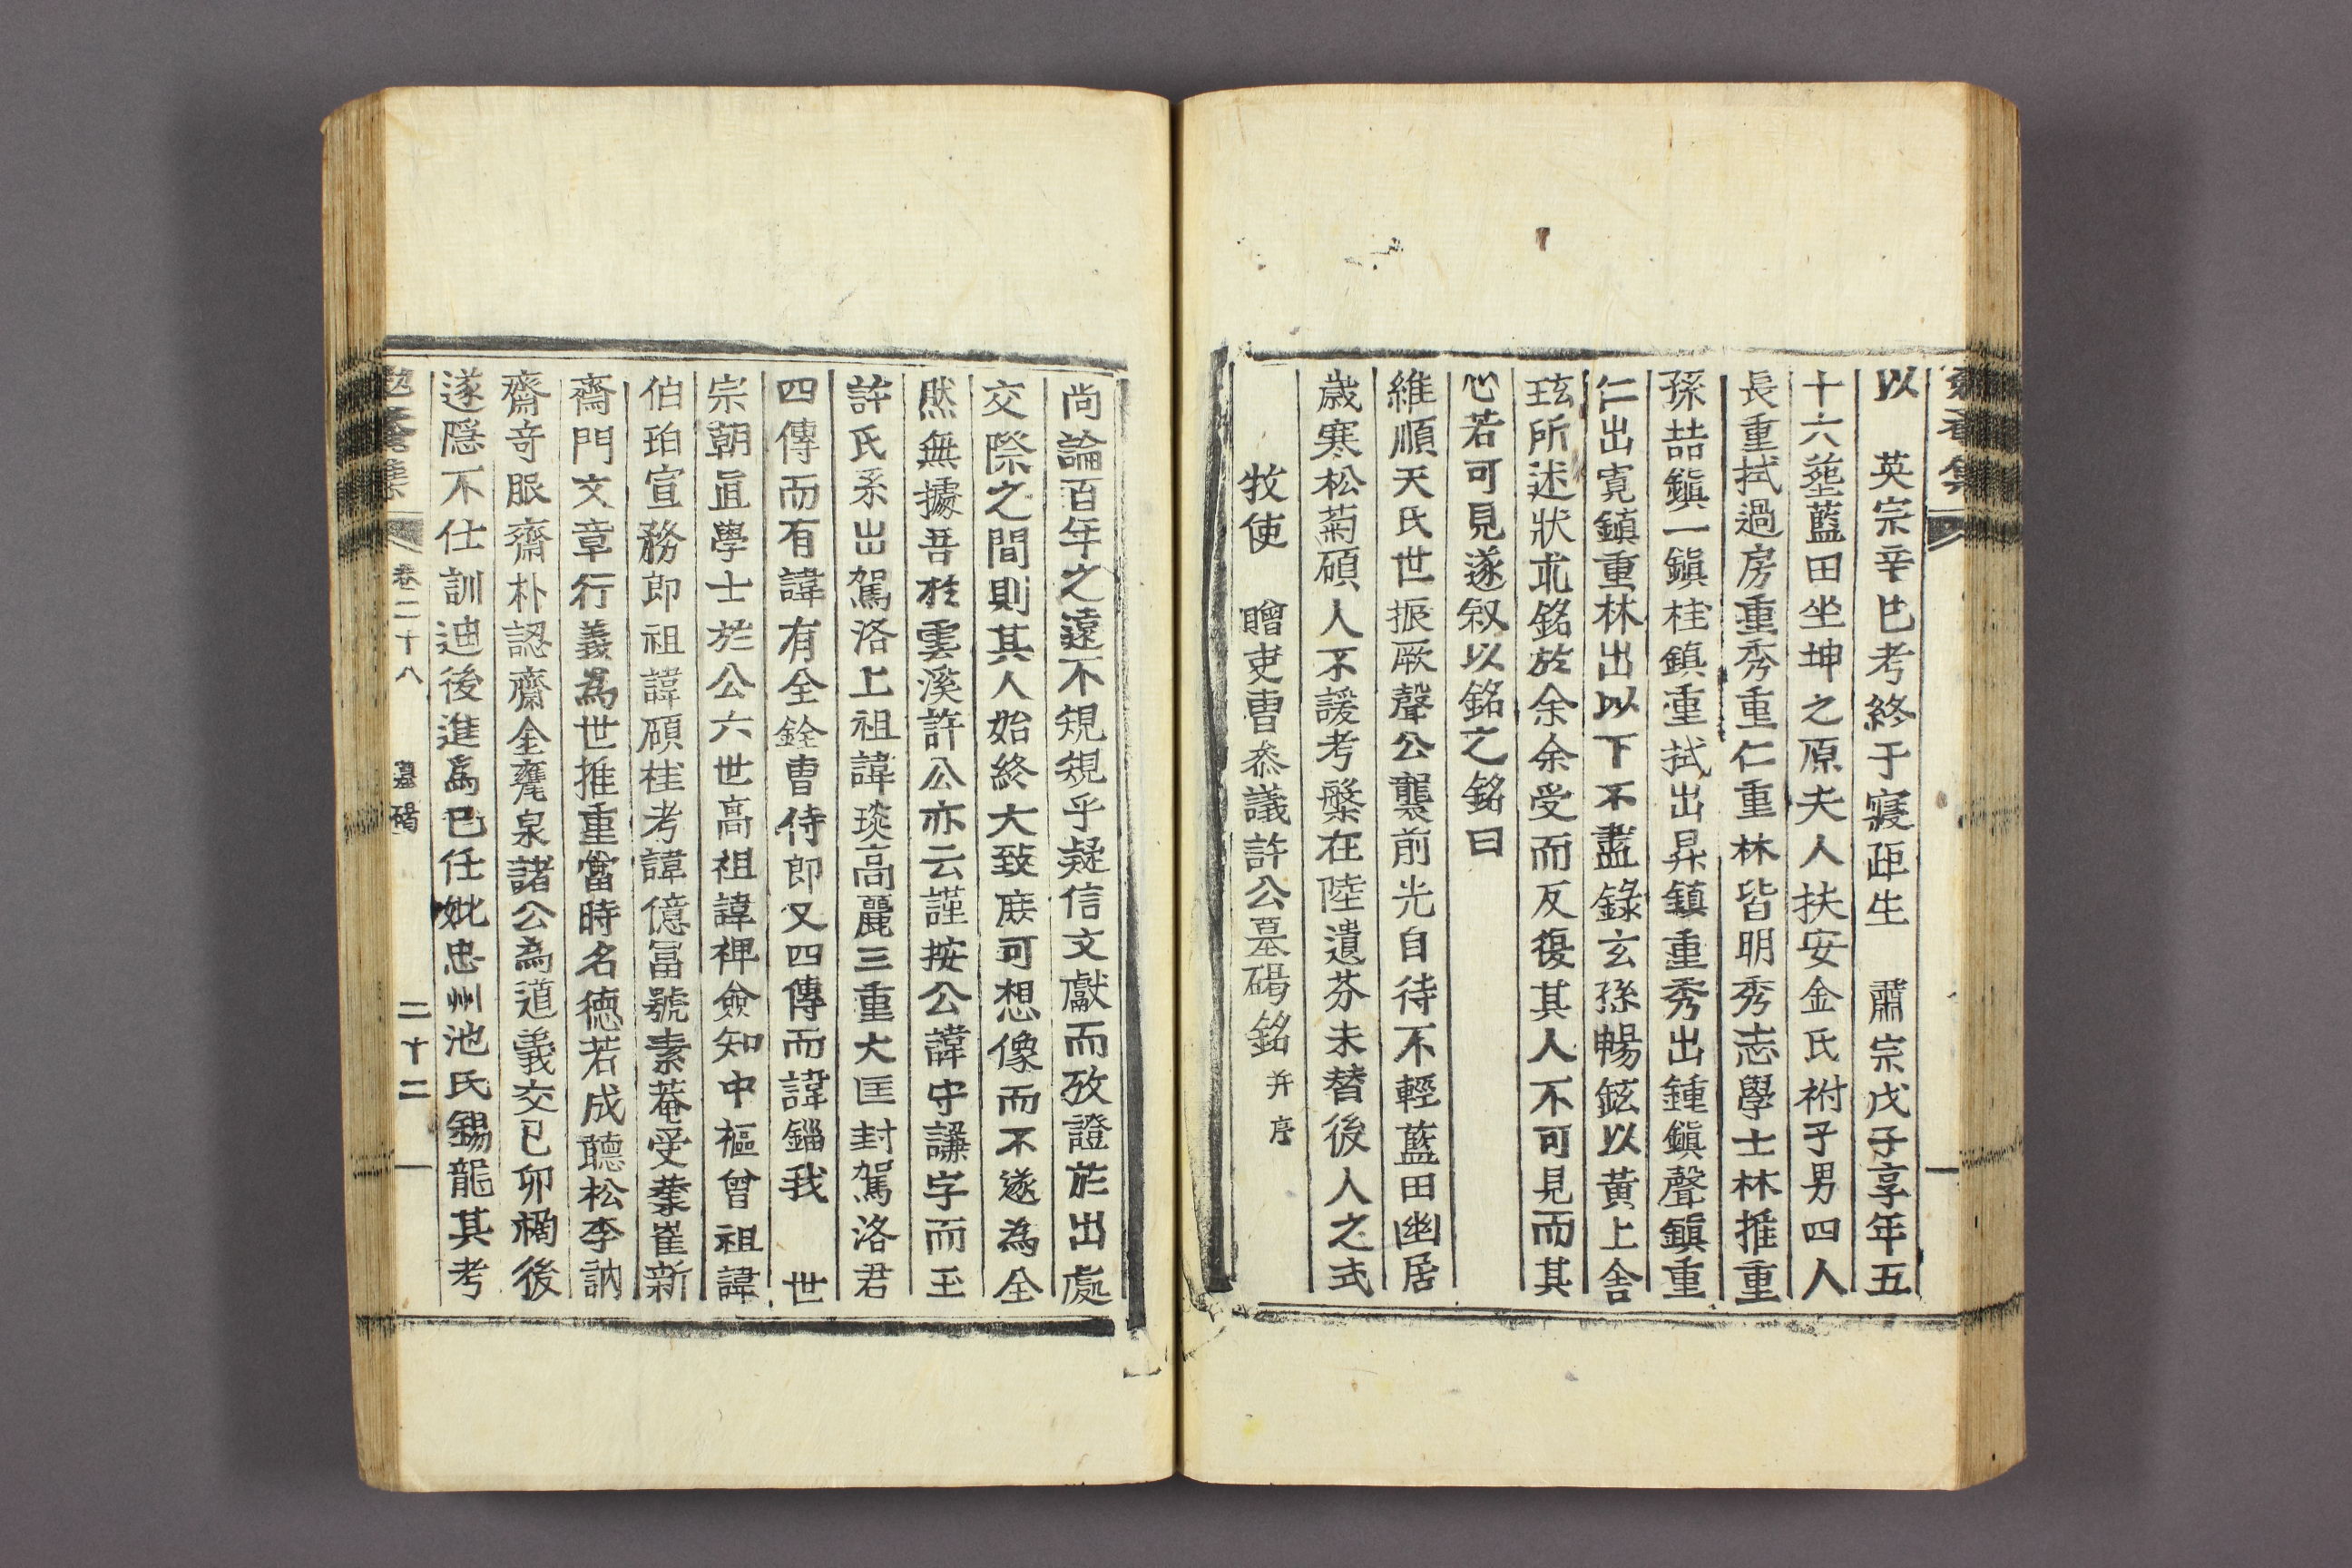 勉菴集
以　英宗辛巳考終于寢距生　肅宗戊子享年五
十六塟藍田坐坤之原夫人扶安金氏祔子男四人
長重拭過房重秀重仁重林皆明秀志學士林推重
孫喆鎭一鎭桂鎮重拭出昇鎮重秀出鍾鎭聲鎭重
仁出寬鎮重林出以下不盡錄玄孫暢鉉以黃上舍
玹所述狀丐銘於余余受而反復其人不可見而其
心若可見遂叙以銘之銘曰
維順天氏世振厥聲公襲前光自待不輕藍田幽居
歲寒松菊碩人不諼考槃在陸遺芬未替後人之式
牧使　贈吏曹叅議許公墓碣銘幷序
尚論百年之遠不規規乎疑信文獻而攷證於出處
交際之間則其人始終大致庶可想像而不遂為全
然無據吾於雲溪許公亦云謹按公諱守謙字而玉
許氏系出駕洛上祖諱琰高麗三重大匡封駕洛君
四傳而有諱有全銓曹侍郎又四傳而諱錙我　世
宗朝直學士於公六世高祖諱裨僉知中樞曾祖諱
伯珀宣務郎祖諱碩桂考諱億富號素菴受業崔新
齋門文章行義爲世推重當時名德若成聽松李訥
齋奇服齋朴認齋金甕泉諸公為道義交己卯禍後
遂隱不仕訓迪後進爲己任妣忠州池氏錫龍其考
勉菴集　卷二十八　墓碣　二十二